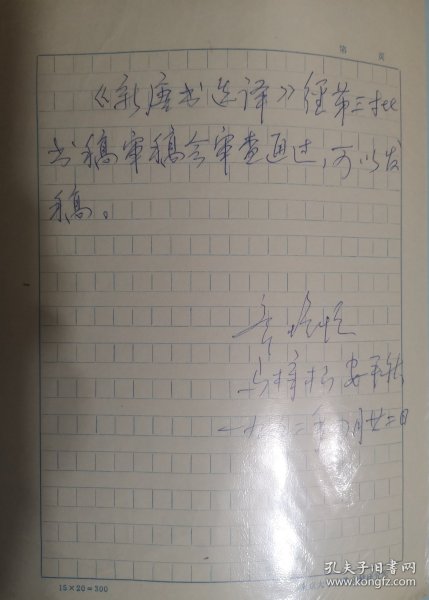 第 页
《新唐书选译》经第三批
书稿审稿会审查通过,可以发
稿。
章培恒
马樟根 安平秋
一九九二年 月廿二日
15×20=300
孔夫子旧书网
www.kongfz.com